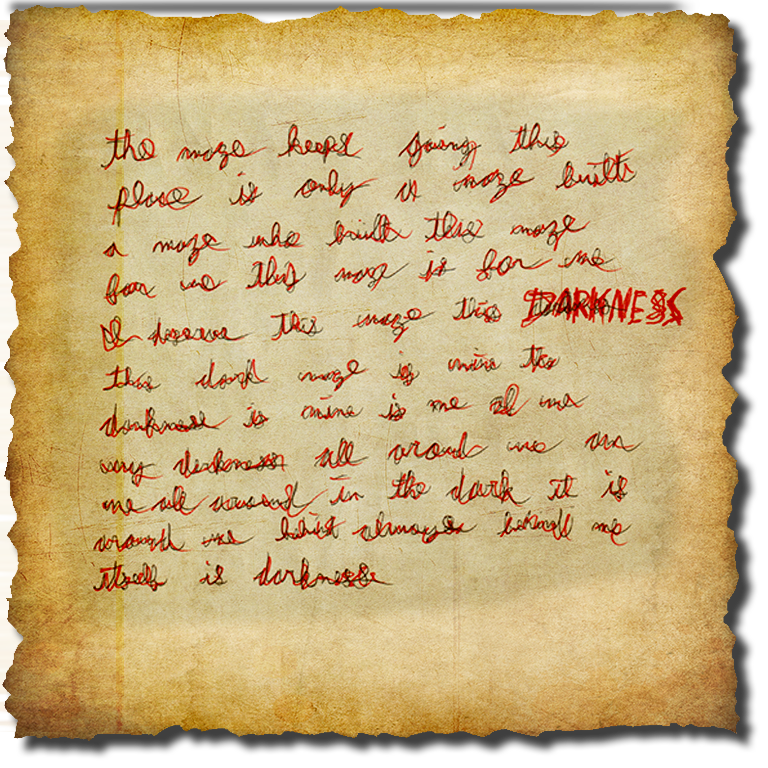 the maze keeps going this
place is only a maze built
a maze who built this maze
for me this maze is for me
I deserve this maze this DARKNESS
this dark maze is mine the
darkness is mine is me all me
my darkness all around me in
me all around in the dark it is
around me behind always behind me
itself is darkness